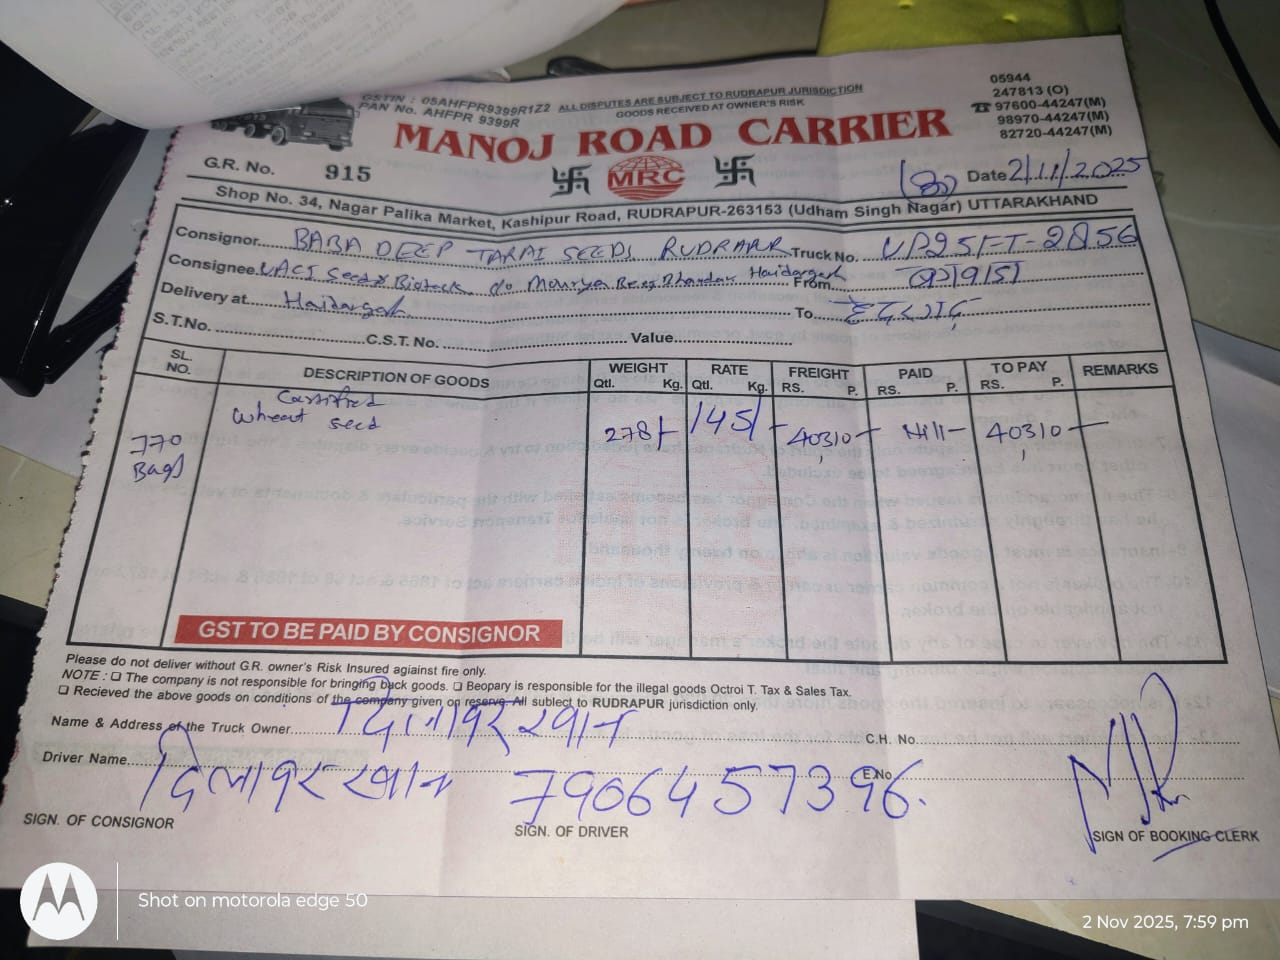 GSTIN : 05AHFPR9399R1Z2 ALL DISPUTES ARE SUBJECT TO RUDRAPUR JURISDICTION
PAN No. AHFPR 9399R GOODS RECEIVED AT OWNER'S RISK
05944
247813 (O)
97600-44247(M)
98970-44247(M)
82720-44247(M)
MANOJ ROAD CARRIER
MRC
G.R. No. 915
Date 2/11/2025
Shop No. 34, Nagar Palika Market, Kashipur Road, RUDRAPUR-263153 (Udham Singh Nagar) UTTARAKHAND
Consignor BABA DEEP TARAI SEEDS RUDRAPUR Truck No. UP25FT-2856
Consignee Seeds Biotech c/o Mourya Beej Bhandar Haidargarh From
Delivery at Haidargarh To हैदरगढ़
S.T.No. C.S.T. No. Value
SL. NO. DESCRIPTION OF GOODS WEIGHT Qtl. Kg. RATE Qtl. Kg. FREIGHT RS. P. PAID RS. P. TO PAY RS. P. REMARKS
770 Bags Certified wheat seed 278/- 145/- 40310- Nill- 40310-
GST TO BE PAID BY CONSIGNOR
Please do not deliver without G.R. owner's Risk Insured agaisnt fire only.
NOTE : ❏ The company is not responsible for bringing back goods. ❏ Beopary is responsible for the illegal goods Octroi T. Tax & Sales Tax.
❏ Recieved the above goods on conditions of the company given on reserve. All sublect to RUDRAPUR jurisdiction only.
Name & Address of the Truck Owner दिलावर खान C.H. No.
Driver Name दिलावर खान 7906457396. E.No
SIGN. OF CONSIGNOR SIGN. OF DRIVER SIGN OF BOOKING CLERK
Shot on motorola edge 50
2 Nov 2025, 7:59 pm